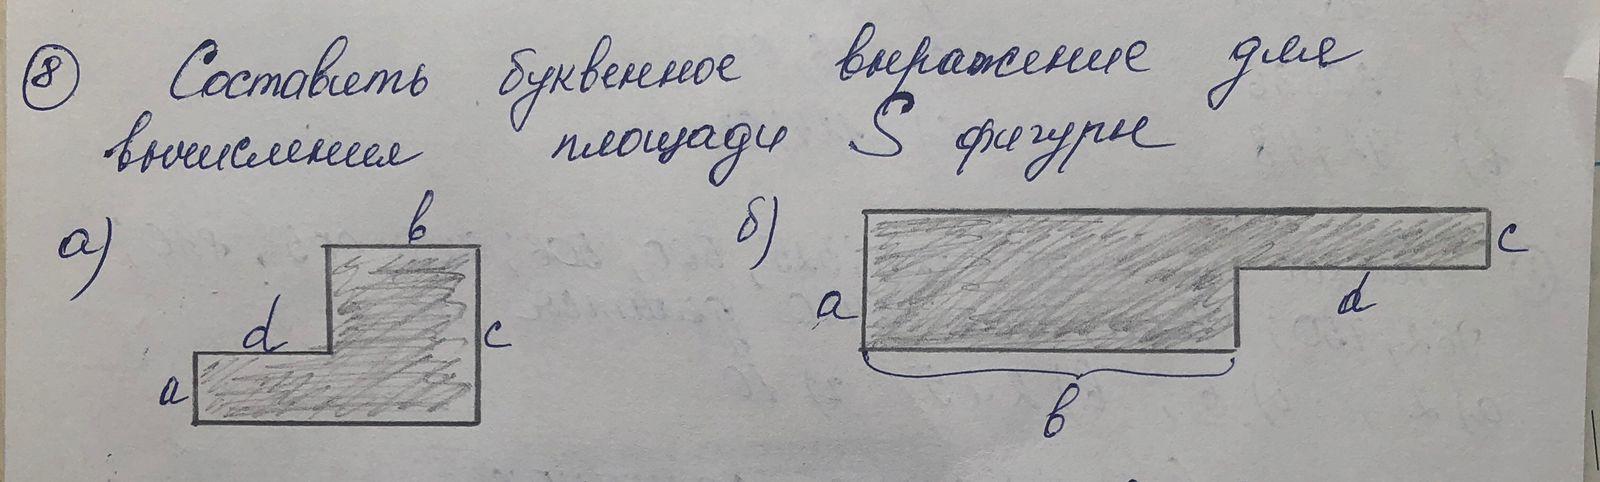 8 Составить буквенное выражение для
вычисления площади S фигуры
а) б)
b
d
c
a
a
c
d
b